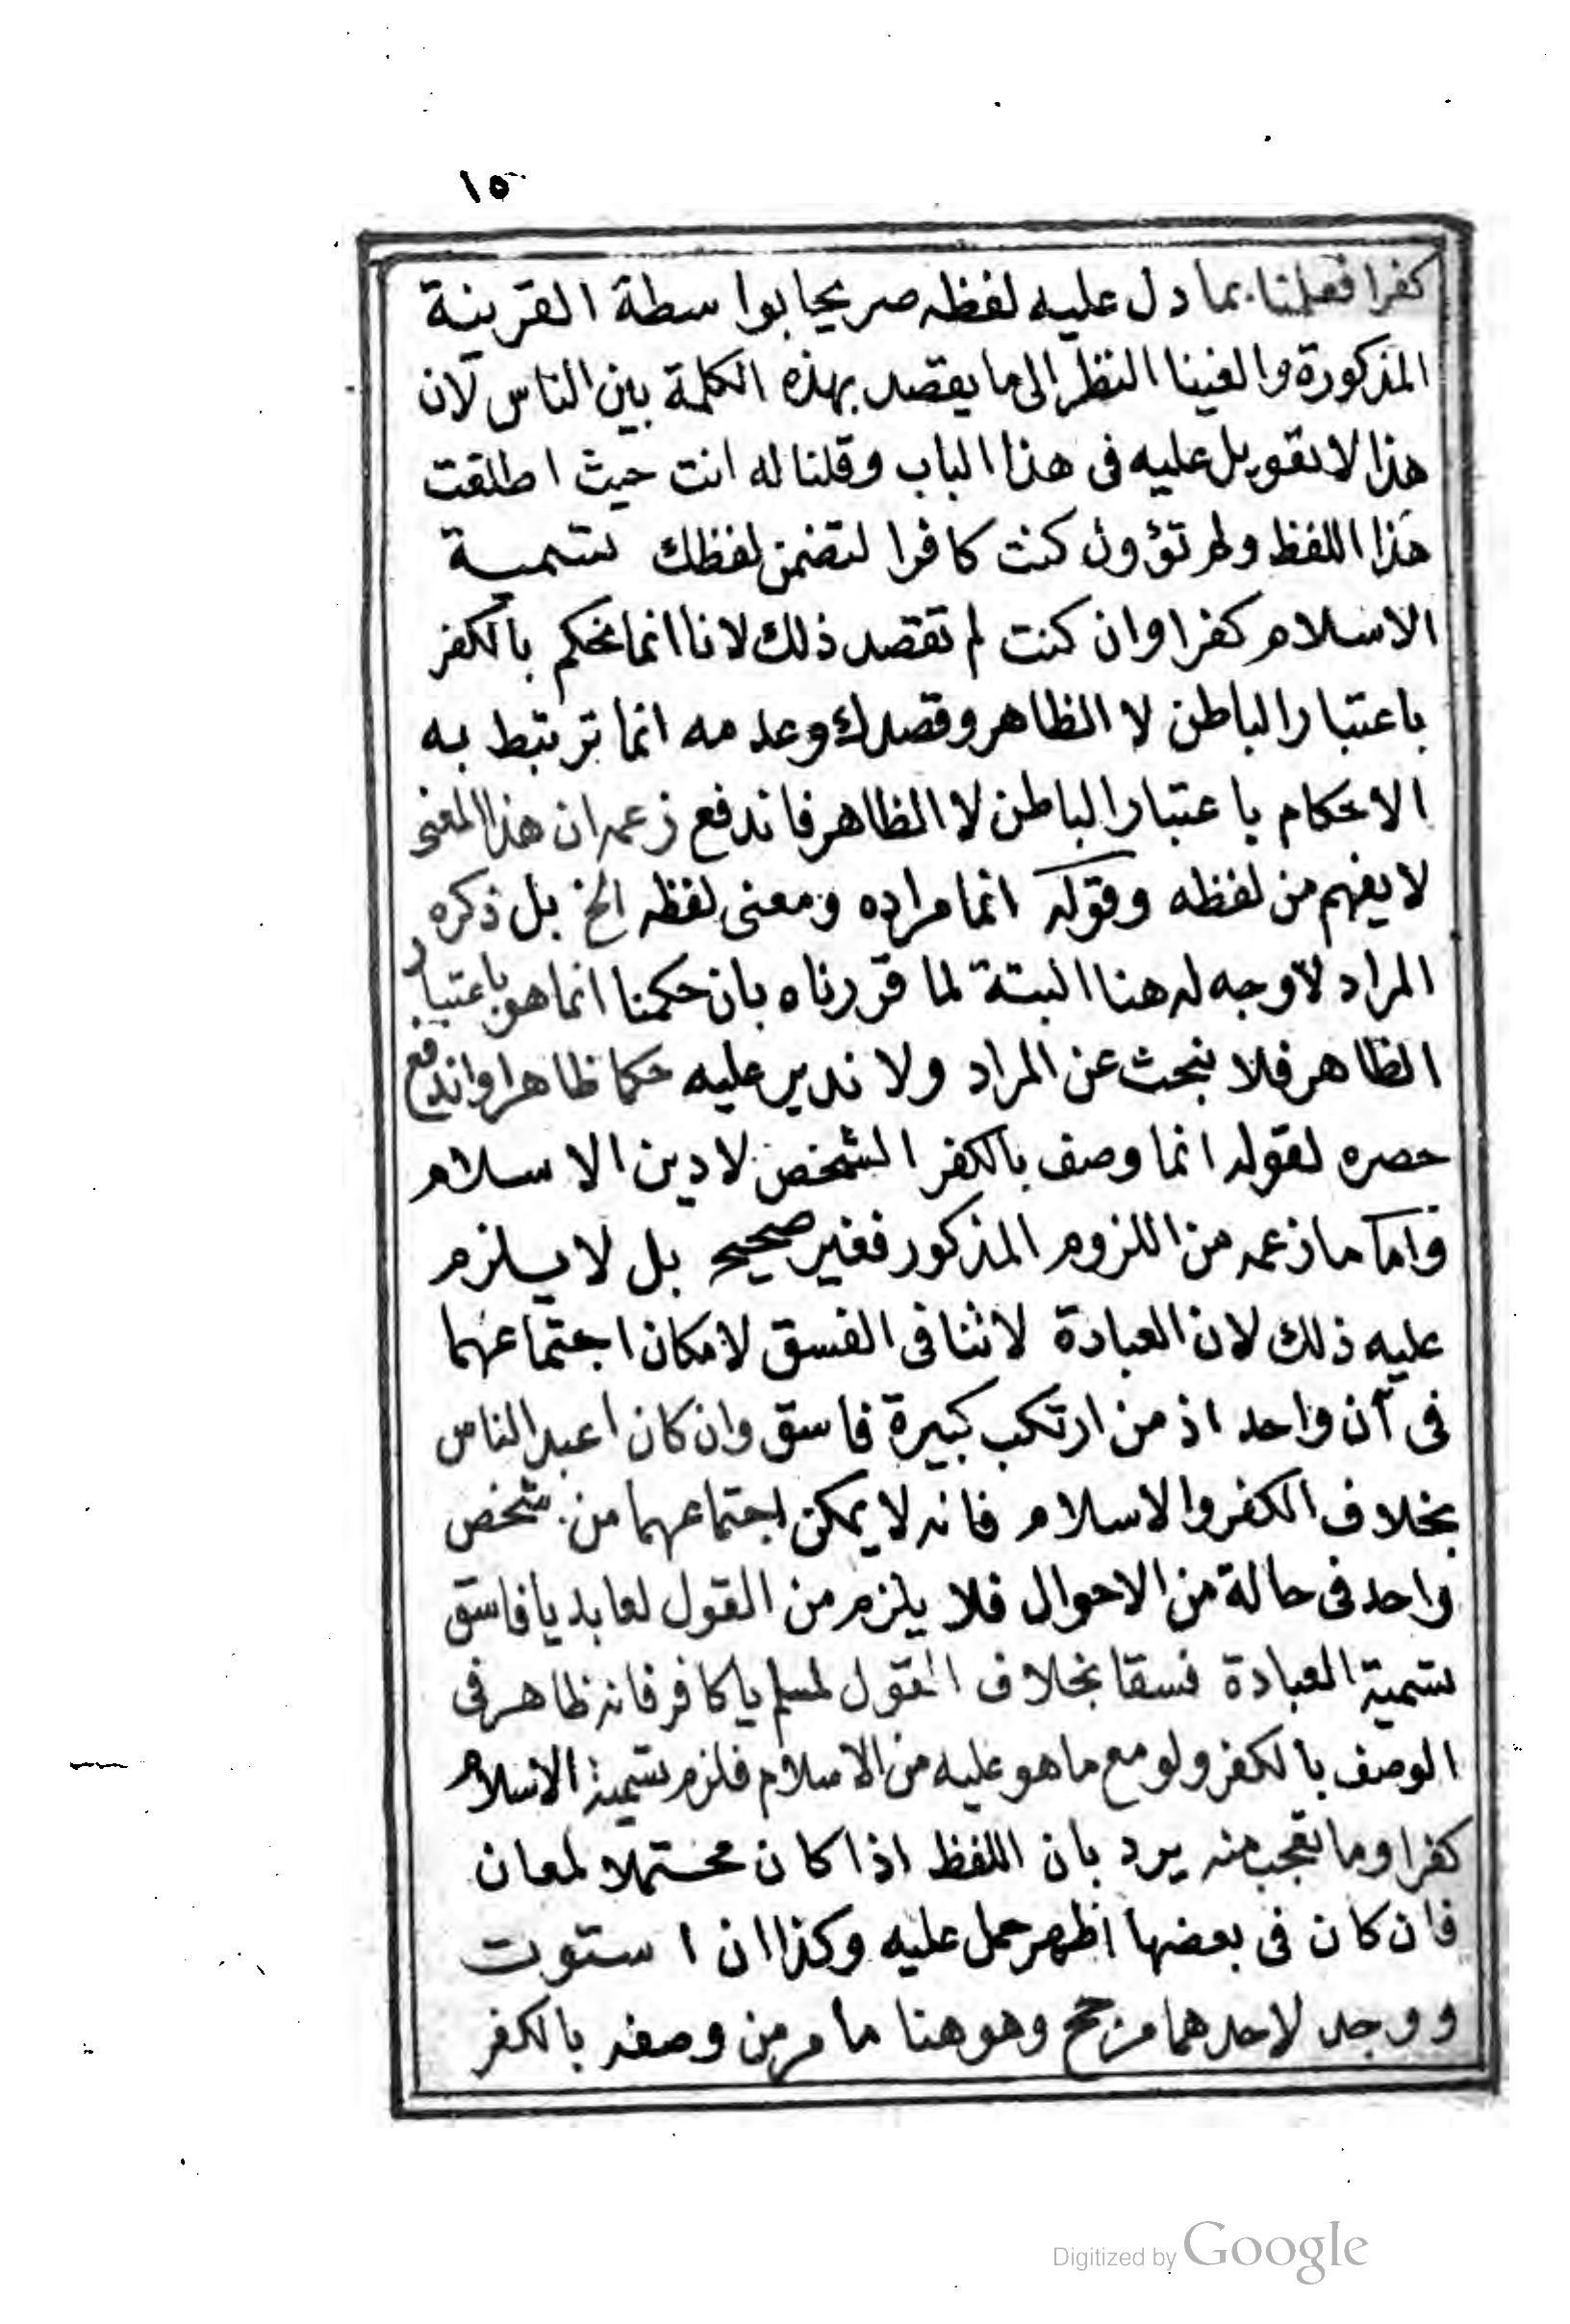 ١٥
كفرا فعملنا بما دل عليه لفظه صريحا بواسطة القرينة
المذكورة والغينا النظر الى ما يقصد بهذه الكلمة بين الناس لان
هذا لا تعويل عليه فى هذا الباب وقلنا له انت حيث اطلقت
هذا اللفظ ولم تؤول كنت كافرا لتضمن لفظك تسمية
الاسلام كفرا وان كنت لم تقصد ذلك لانا انما نحكم بالكفر
باعتبار الباطن لا الظاهر وقصدك وعدمه انما ترتبط به
الاحكام باعتبار الباطن لا الظاهر فاندفع زعمه ان هذا المعنى
لا يفهم من لفظه وقوله انما مراده ومعنى لفظه الخ بل ذكره
المراد لا وجه له هنا البتة لما قررناه بان حكمنا انما هو باعتبار
الظاهر فلا نبحث عن المراد ولا ندير عليه حكما ظاهرا واندفع
حصره لقوله انما وصف بالكفر الشخص لا دين الاسلام
واما ما زعمه من اللزوم المذكور فغير صحيح بل لا يلزم
عليه ذلك لان العبادة لا تنافى الفسق لامكان اجتماعهما
فى آن واحد اذ من ارتكب كبيرة فاسق وان كان اعبد الناس
بخلاف الكفر والاسلام فانه لا يمكن اجتماعهما من شخص
واحد فى حالة من الاحوال فلا يلزم من القول لعابد يا فاسق
تسمية العبادة فسقا بخلاف القول لمسلم يا كافر فانه ظاهر فى
الوصف بالكفر ولو مع ما هو عليه من الاسلام فلزم تسمية الاسلام
كفرا وما تعجب منه يرد بان اللفظ اذا كان محتملا لمعان
فان كان فى بعضها اظهر حمل عليه وكذا ان استوت
ووجد لاحدهما مرجح وهو هنا ما مر من وصفه بالكفر
Digitized by Google